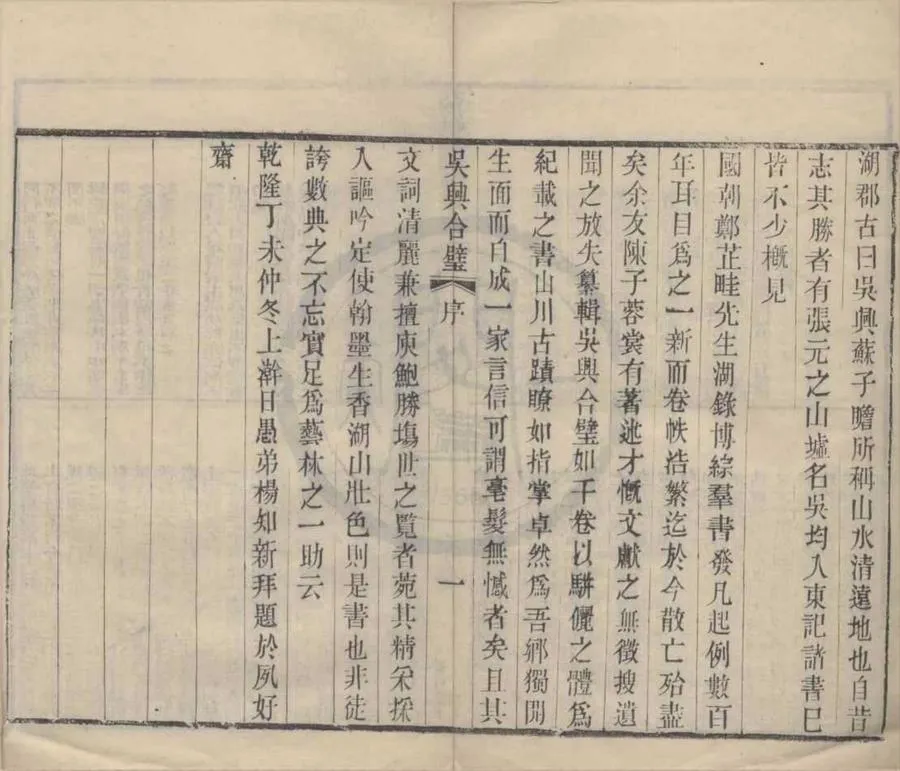 湖郡古曰吳興蘇子瞻所稱山水清遠地也自昔
志其勝者有張元之山墟名吳均入東記諸書已
皆不少槪見
國朝鄭芷畦先生湖錄博綜羣書發凡起例數百
年耳目爲之一新而卷帙浩繁迄於今散亡殆盡
矣余友陳子蓉裳有著述才慨文獻之無徵搜遺
聞之放失纂輯吳興合璧如干卷以駢儷之體爲
紀載之書山川古蹟瞭如指掌卓然爲吾鄕獨開
生面而自成一家言信可謂毫髮無憾者矣且其
吳興合璧 序 一
文詞清麗兼擅庾鮑勝塲世之覽者菀其精采採
入謳吟定使翰墨生香湖山壯色則是書也非徒
誇數典之不忘實足爲藝林之一助云
乾隆丁未仲冬上澣日愚弟楊知新拜題於夙好
齋